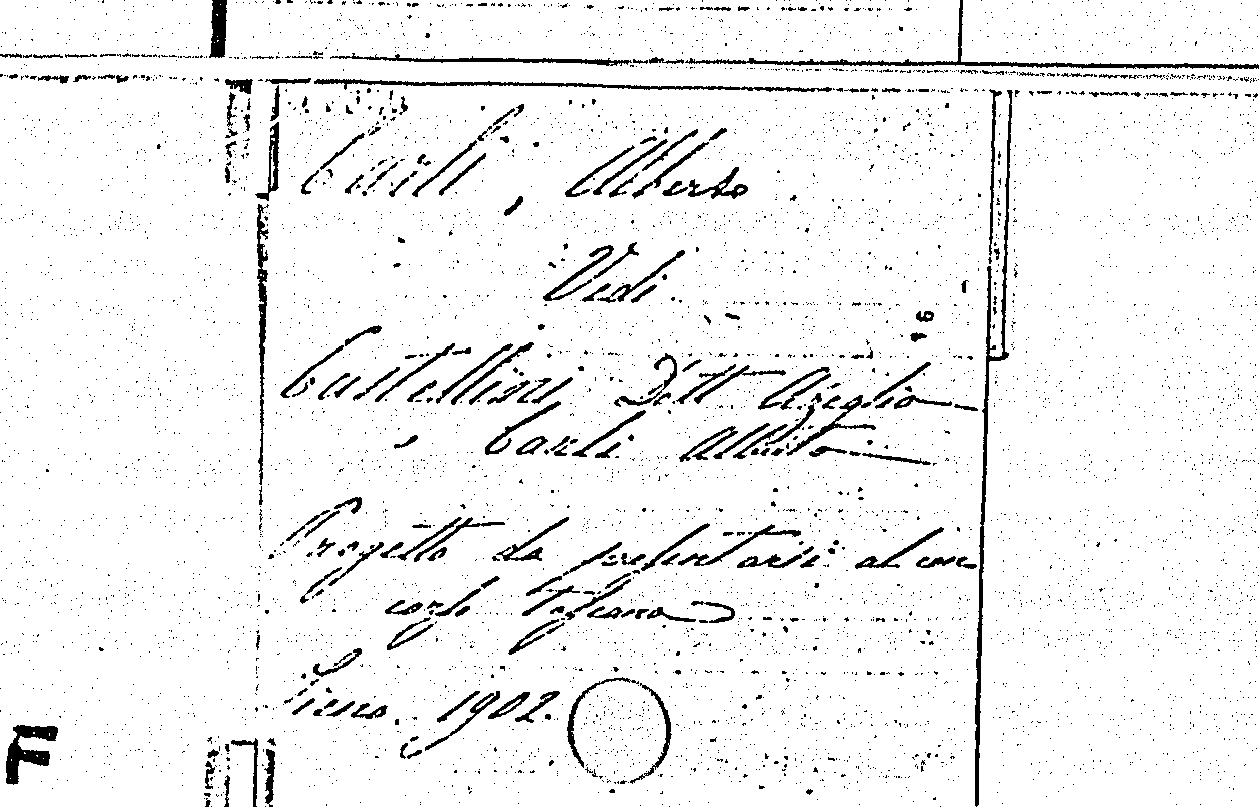 Carli, Alberto
Vedi
16
Castellini Dott Azeglio
, Carli Alberto
Progetto da presentarsi al con
corso Toscano
Siena. 1902.
F